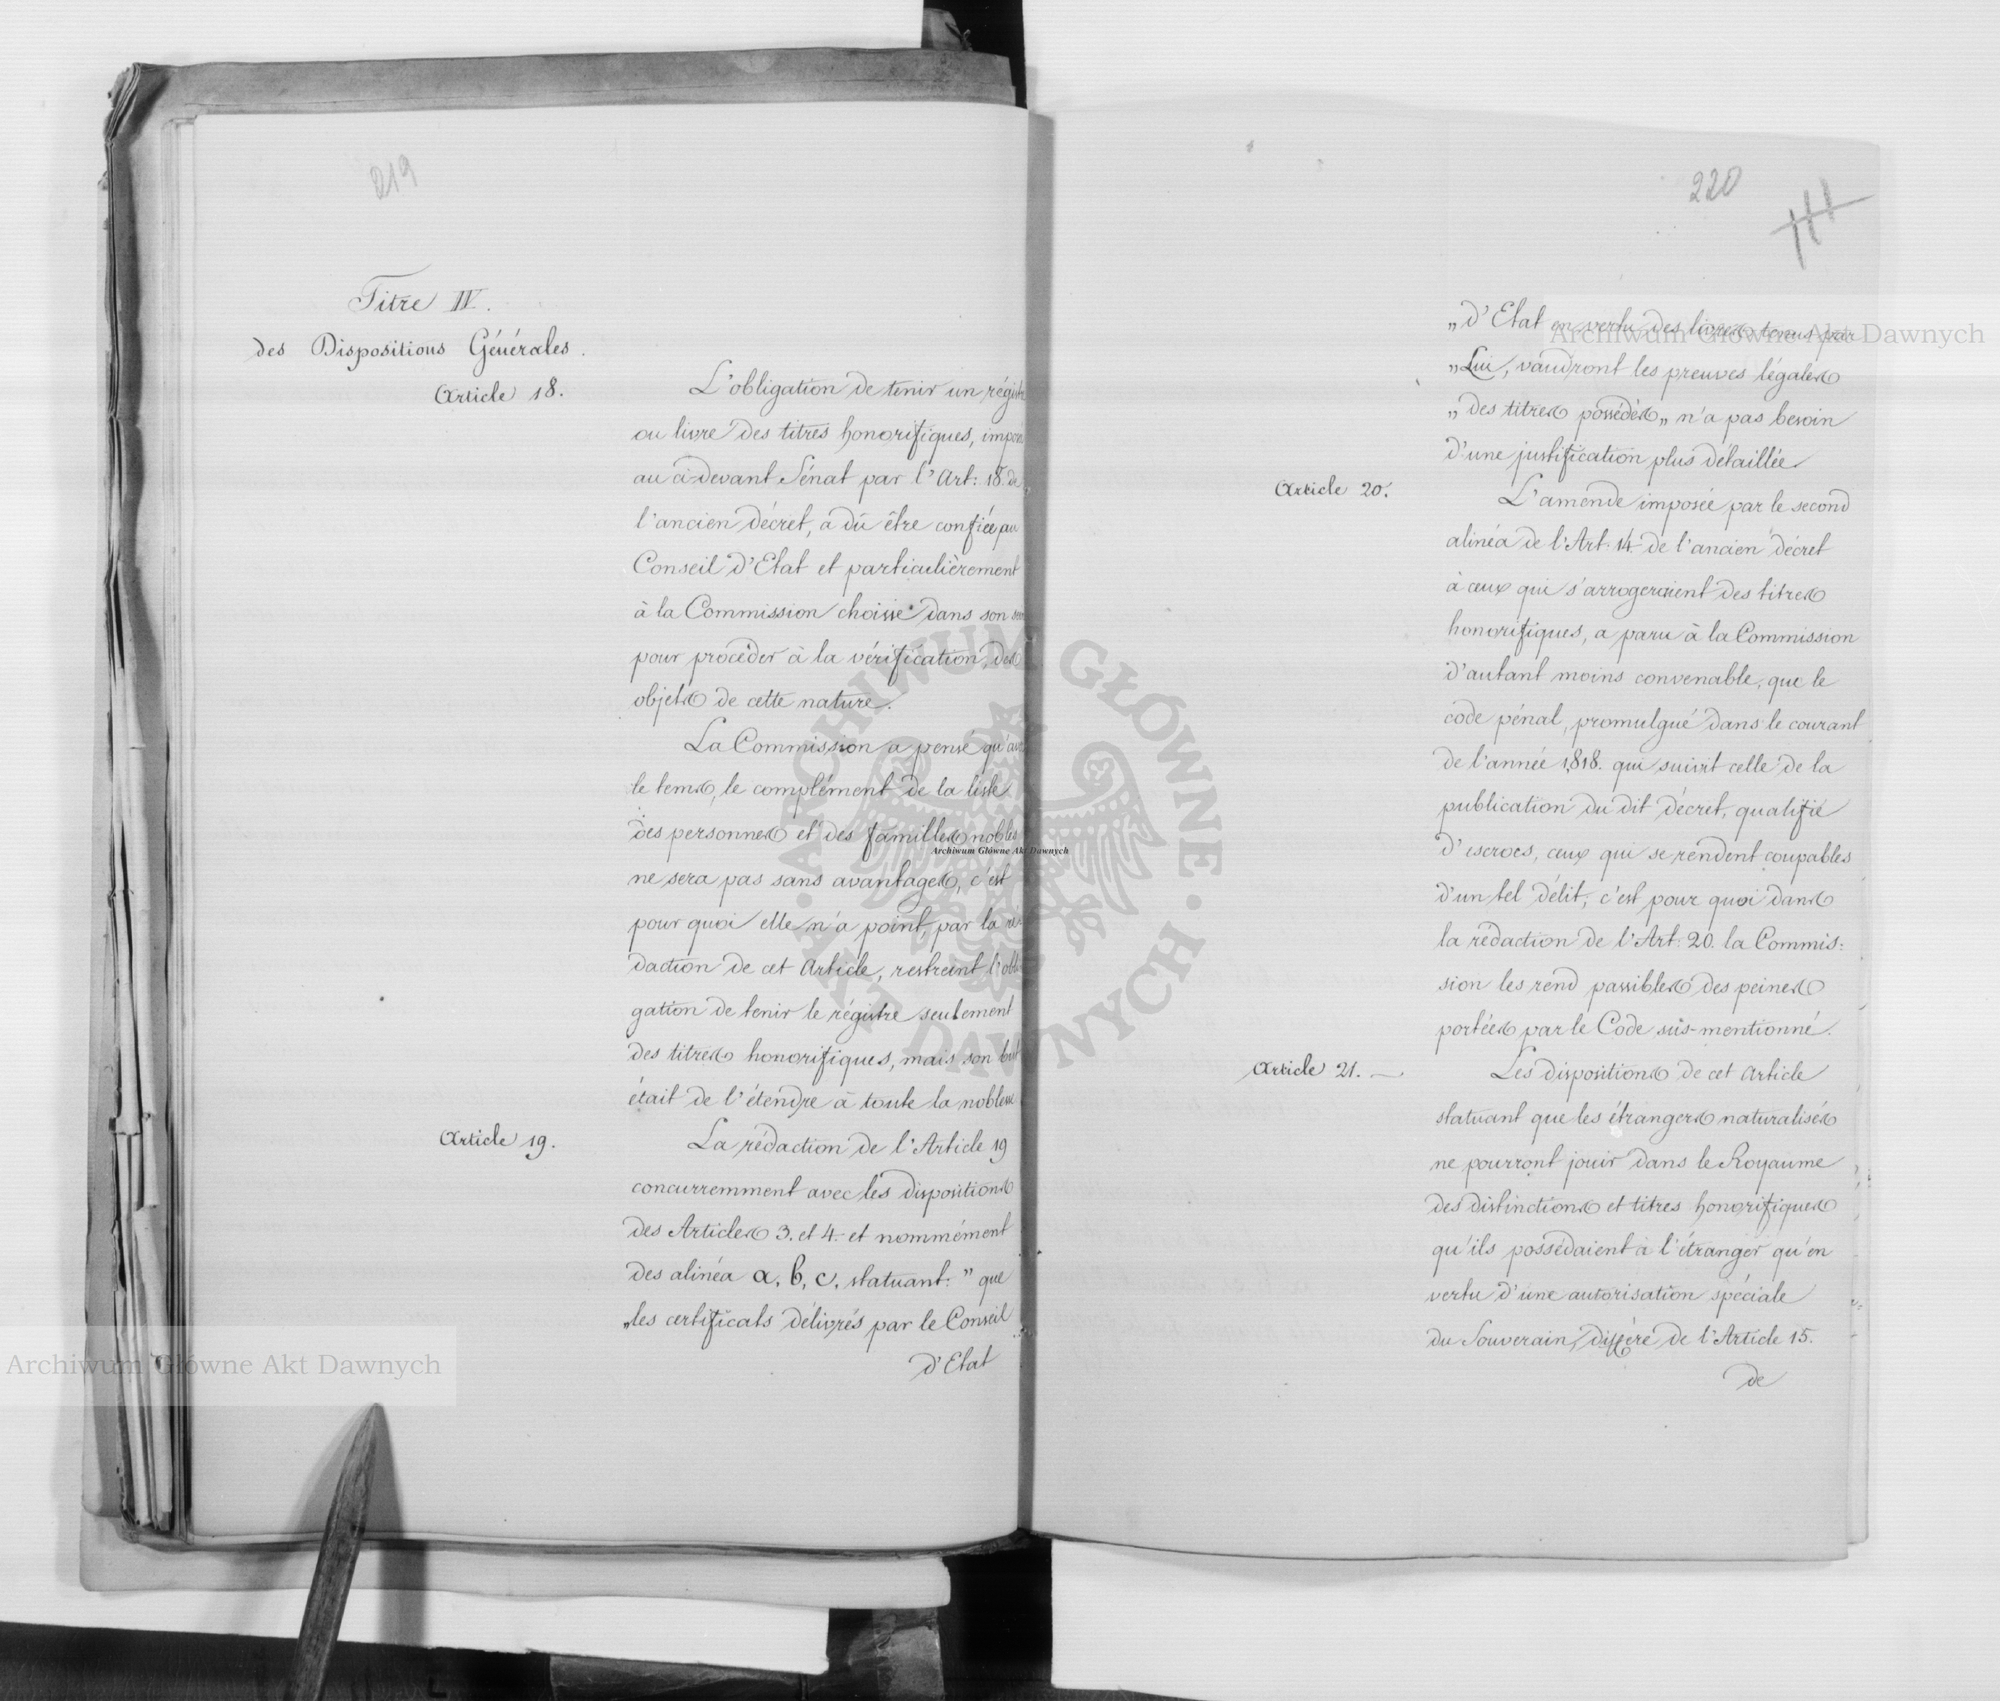 219
Titre IV.
des Dispositions Générales.
Article 18.
L'obligation de tenir un régistre
ou livre des titres honorifiques, imposée
au ci-devant Sénat par l'Art: 18. de
l'ancien décret, a dû être confiée au
Conseil d'Etat et particulièrement
à la Commission choisie dans son sein
pour procéder à la vérification des
objets de cette nature.
La Commission a pensé qu'avec
le tems, le complément de la liste
des personnes et des familles nobles
ne sera pas sans avantages, c'est
pour quoi elle n'a point, par la ré-
daction de cet Article, restreint l'obli
gation de tenir le régistre seulement
des titres honorifiques, mais son but
était de l'étendre à toute la noblesse
Article 19.
La rédaction de l'Article 19
concurremment avec les dispositions
des Articles 3. et 4. et nommément
des alinéa a, b, c, statuant: " que
„les certificats délivrés par le Conseil
d'Etat
220
„d'Etat en vertu des livres tenus par
„Lui, vaudront les preuves légales
„des titres possédés„ n'a pas besoin
d'une justification plus détaillée
Article 20.
L'amende imposée par le second
alinéa de l'Art. 14 de l'ancien décret
à ceux qui s'arrogeraient des titres
honorifiques, a paru à la Commission
d'autant moins convenable, que le
code pénal, promulgué dans le courant
de l'année 1818. qui suivit celle de la
publication du dit décret, qualifie
d'escrocs, ceux qui se rendent coupables
d'un tel délit, c'est pour quoi dans
la rédaction de l'Art: 20. la Commis:
sion les rend passibles des peines
portées par le Code sus-mentionné.
Article 21. —
Les dispositions de cet Article
statuant que les étrangers naturalisés
ne pourront jouir dans le Royaume
des distinctions et titres honorifiques
qu'ils possédaient à l'étranger qu'en
vertu d'une autorisation spéciale
du Souverain, diffère de l'Article 15.
de
Archiwum Główne Akt Dawnych
Archiwum Główne Akt Dawnych
Archiwum Główne Akt Dawnych
ARCHIWUM GŁÓWNE · AKT DAWNYCH ·